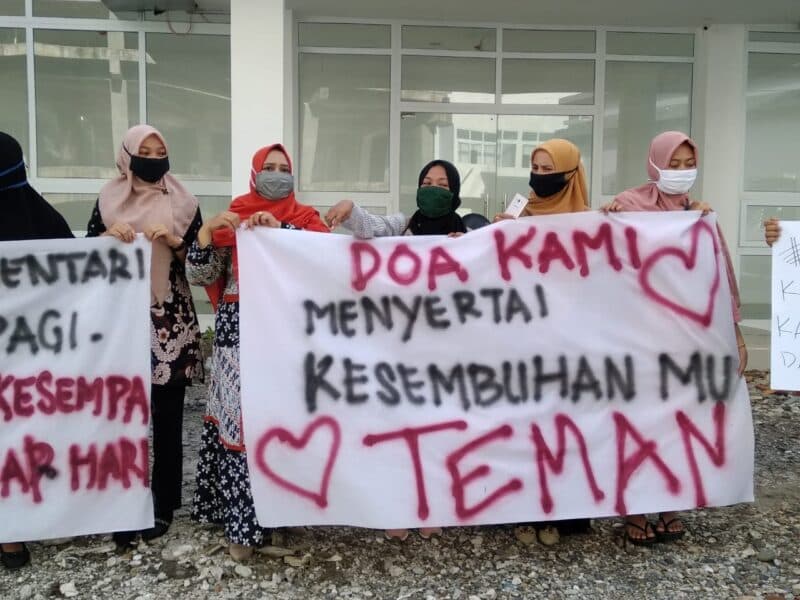 ENTARI
PAGI.
KESEMPA
AP HARI
DOA KAMI
MENYERTAI
KESEMBUHAN MU
TEMAN
#
K
KA
DA